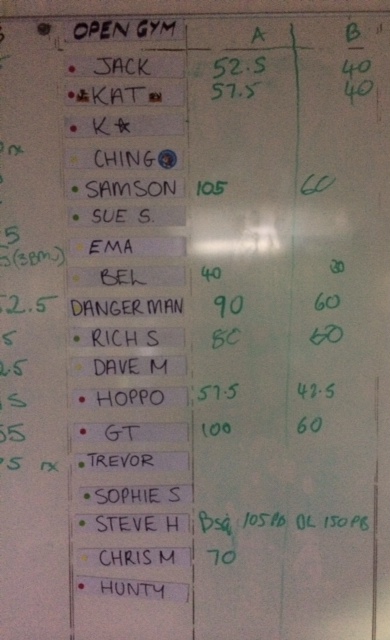 OPEN GYM A B
JACK 52.5 40
KAT 57.5 40
rx K
CHING
SAMSON 105 60
SUE S.
5
(3BMU) EMA
BEL 40 30
2.5 DANGERMAN 90 60
5 RICH S 80 60
2.5 DAVE M
5 HOPPO 57.5 42.5
55 GT 100 60
5 rx TREVOR
SOPHIE S
STEVE H Bsq 105PB DL 150PB
CHRIS M 70
HUNTY